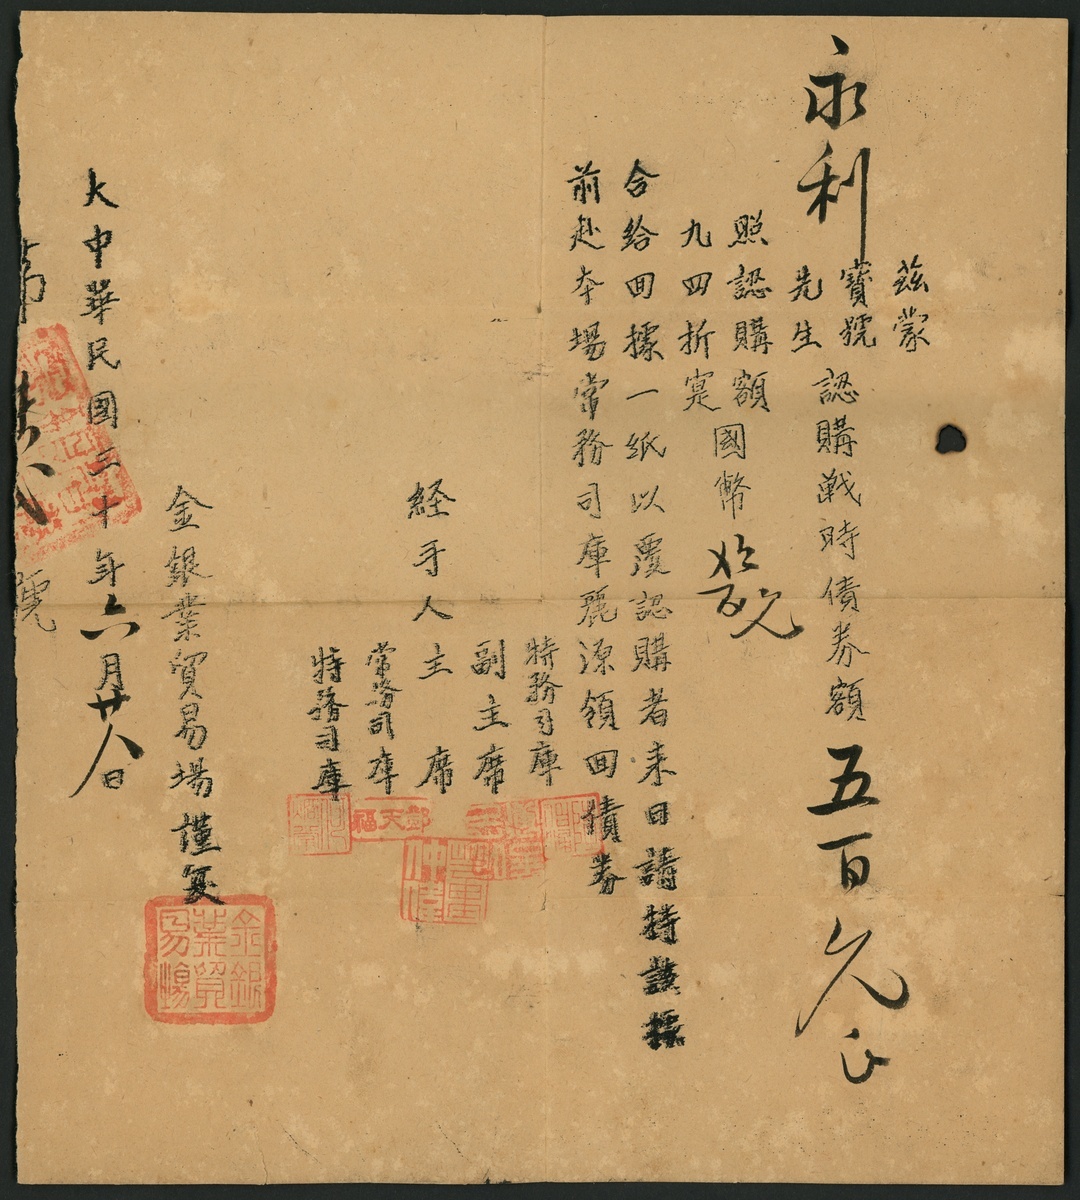 茲蒙
永利
寶號
先生
認購戰時債券額五百元正
照認購額
九四折寔國幣
合給回據一紙以覆認購者来日請持該據
前赴本場常務司庫麗源領回債券
特務司庫
副主席
経手人主席
常務司庫
特務司庫
郭天福
金銀業貿易場謹笺
金銀業貿易場
大中華民國三十年六月廿八日
第
號